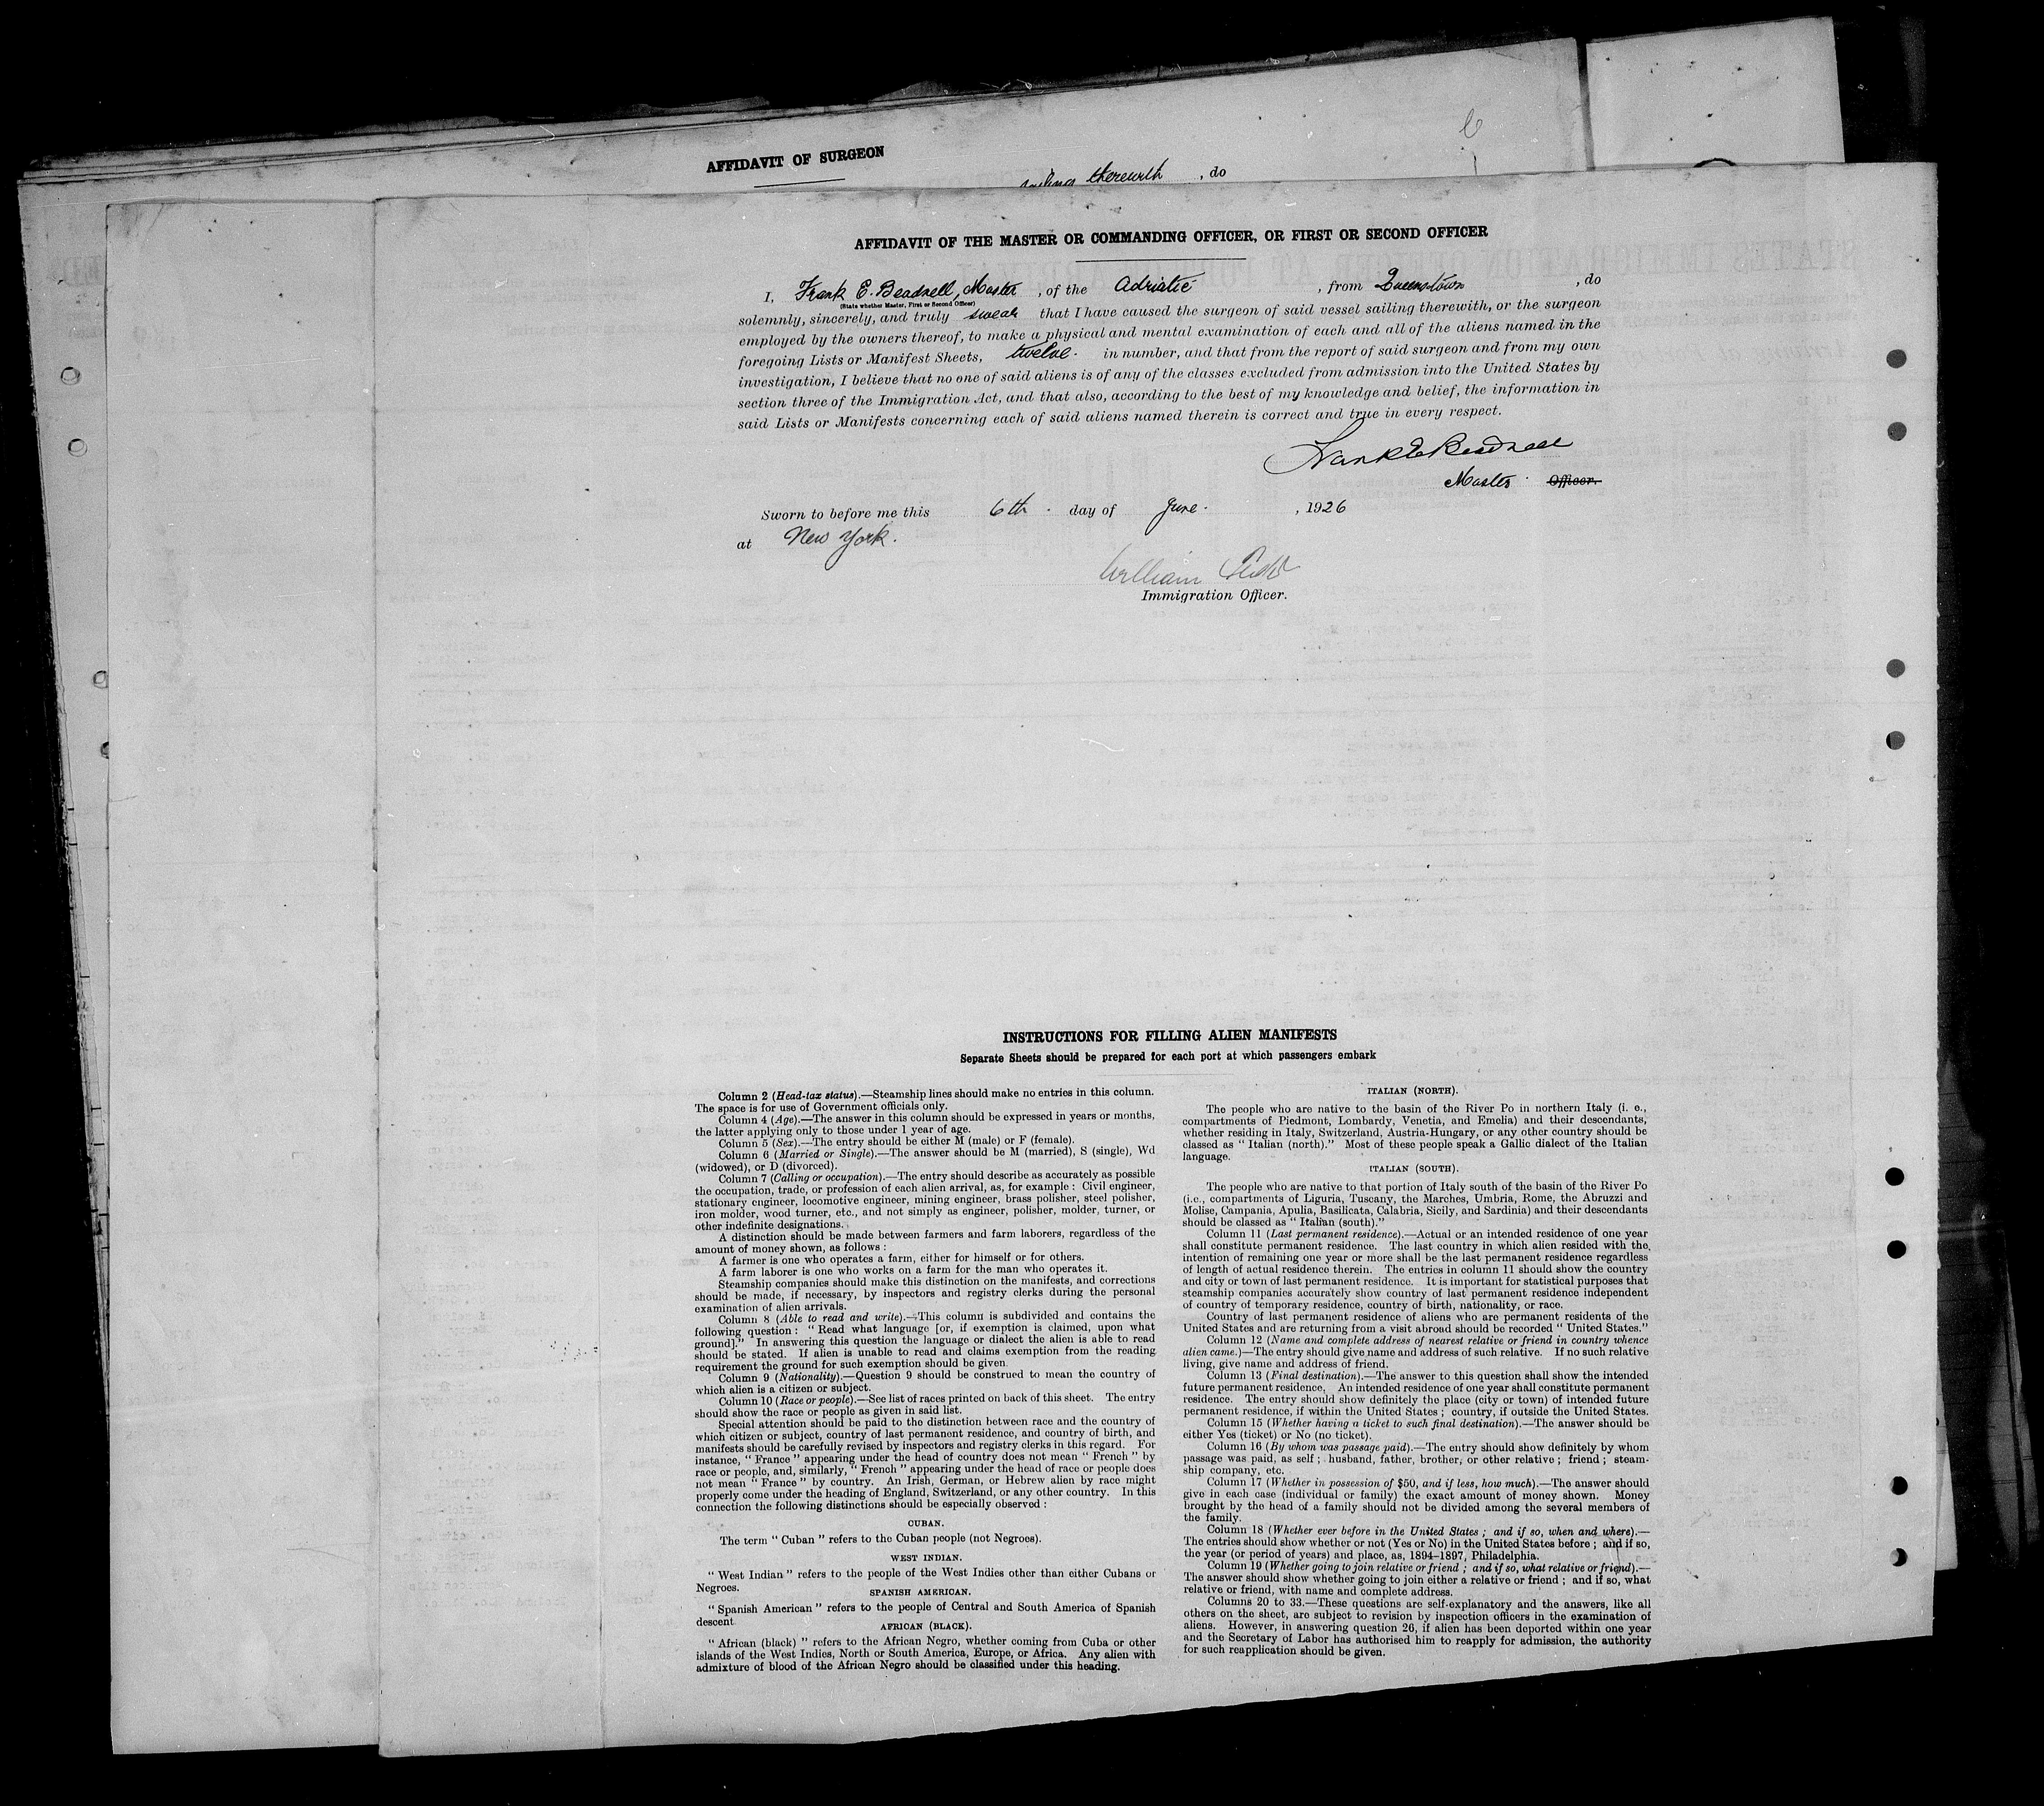 AFFIDAVIT OF SURGEON
therewith , do
AFFIDAVIT OF THE MASTER OR COMMANDING OFFICER, OR FIRST OR SECOND OFFICER
I, Frank E. Beadnell, Master , of the Adriatic , from Queenstown , do
(State whether Master, First or Second Officer)
solemnly, sincerely, and truly swear that I have caused the surgeon of said vessel sailing therewith, or the surgeon
employed by the owners thereof, to make a physical and mental examination of each and all of the aliens named in the
foregoing Lists or Manifest Sheets, twelve. in number, and that from the report of said surgeon and from my own
investigation, I believe that no one of said aliens is of any of the classes excluded from admission into the United States by
section three of the Immigration Act, and that also, according to the best of my knowledge and belief, the information in
said Lists or Manifests concerning each of said aliens named therein is correct and true in every respect.
Frank E Beadnell
Master. Officer.
Sworn to before me this 6th. day of June. , 1926
at New York.
William
Immigration Officer.
INSTRUCTIONS FOR FILLING ALIEN MANIFESTS
Separate Sheets should be prepared for each port at which passengers embark
Column 2 (Head-tax status).—Steamship lines should make no entries in this column.
The space is for use of Government officials only.
Column 4 (Age).—The answer in this column should be expressed in years or months,
the latter applying only to those under 1 year of age.
Column 5 (Sex).—The entry should be either M (male) or F (female).
Column 6 (Married or Single).—The answer should be M (married), S (single), Wd
(widowed), or D (divorced).
Column 7 (Calling or occupation).—The entry should describe as accurately as possible
the occupation, trade, or profession of each alien arrival, as, for example : Civil engineer,
stationary engineer, locomotive engineer, mining engineer, brass polisher, steel polisher,
iron molder, wood turner, etc., and not simply as engineer, polisher, molder, turner, or
other indefinite designations.
A distinction should be made between farmers and farm laborers, regardless of the
amount of money shown, as follows :
A farmer is one who operates a farm, either for himself or for others.
A farm laborer is one who works on a farm for the man who operates it.
Steamship companies should make this distinction on the manifests, and corrections
should be made, if necessary, by inspectors and registry clerks during the personal
examination of alien arrivals.
Column 8 (Able to read and write).—This column is subdivided and contains the
following question : " Read what language [or, if exemption is claimed, upon what
ground]." In answering this question the language or dialect the alien is able to read
should be stated. If alien is unable to read and claims exemption from the reading
requirement the ground for such exemption should be given.
Column 9 (Nationality).—Question 9 should be construed to mean the country of
which alien is a citizen or subject.
Column 10 (Race or people).—See list of races printed on back of this sheet. The entry
should show the race or people as given in said list.
Special attention should be paid to the distinction between race and the country of
which citizen or subject, country of last permanent residence, and country of birth, and
manifests should be carefully revised by inspectors and registry clerks in this regard. For
instance, " France " appearing under the head of country does not mean " French " by
race or people, and, similarly, " French " appearing under the head of race or people does
not mean " France " by country. An Irish, German, or Hebrew alien by race might
properly come under the heading of England, Switzerland, or any other country. In this
connection the following distinctions should be especially observed :
CUBAN.
The term " Cuban " refers to the Cuban people (not Negroes).
WEST INDIAN.
" West Indian " refers to the people of the West Indies other than either Cubans or
Negroes.
SPANISH AMERICAN.
" Spanish American " refers to the people of Central and South America of Spanish
descent
AFRICAN (BLACK).
" African (black) " refers to the African Negro, whether coming from Cuba or other
islands of the West Indies, North or South America, Europe, or Africa. Any alien with
admixture of blood of the African Negro should be classified under this heading.
ITALIAN (NORTH).
The people who are native to the basin of the River Po in northern Italy (i. e.,
compartments of Piedmont, Lombardy, Venetia, and Emelia) and their descendants,
whether residing in Italy, Switzerland, Austria-Hungary, or any other country should be
classed as " Italian (north)." Most of these people speak a Gallic dialect of the Italian
language.
ITALIAN (SOUTH).
The people who are native to that portion of Italy south of the basin of the River Po
(i.e., compartments of Liguria, Tuscany, the Marches, Umbria, Rome, the Abruzzi and
Molise, Campania, Apulia, Basilicata, Calabria, Sicily, and Sardinia) and their descendants
should be classed as " Italian (south)."
Column 11 (Last permanent residence).—Actual or an intended residence of one year
shall constitute permanent residence. The last country in which alien resided with the
intention of remaining one year or more shall be the last permanent residence regardless
of length of actual residence therein. The entries in column 11 should show the country
and city or town of last permanent residence. It is important for statistical purposes that
steamship companies accurately show country of last permanent residence independent
of country of temporary residence, country of birth, nationality, or race.
Country of last permanent residence of aliens who are permanent residents of the
United States and are returning from a visit abroad should be recorded " United States."
Column 12 (Name and complete address of nearest relative or friend in country whence
alien came.)—The entry should give name and address of such relative. If no such relative
living, give name and address of friend.
Column 13 (Final destination).—The answer to this question shall show the intended
future permanent residence. An intended residence of one year shall constitute permanent
residence. The entry should show definitely the place (city or town) of intended future
permanent residence, if within the United States ; country, if outside the United States.
Column 15 (Whether having a ticket to such final destination).—The answer should be
either Yes (ticket) or No (no ticket).
Column 16 (By whom was passage paid).—The entry should show definitely by whom
passage was paid, as self ; husband, father, brother, or other relative ; friend ; steam-
ship company, etc.
Column 17 (Whether in possession of $50, and if less, how much).—The answer should
give in each case (individual or family) the exact amount of money shown. Money
brought by the head of a family should not be divided among the several members of
the family.
Column 18 (Whether ever before in the United States ; and if so, when and where).—
The entries should show whether or not (Yes or No) in the United States before ; and if so,
the year (or period of years) and place, as, 1894–1897, Philadelphia.
Column 19 (Whether going to join relative or friend ; and if so, what relative or friend).—
The answer should show whether going to join either a relative or friend ; and if so, what
relative or friend, with name and complete address.
Columns 20 to 33.—These questions are self-explanatory and the answers, like all
others on the sheet, are subject to revision by inspection officers in the examination of
aliens. However, in answering question 26, if alien has been deported within one year
and the Secretary of Labor has authorised him to reapply for admission, the authority
for such reapplication should be given.